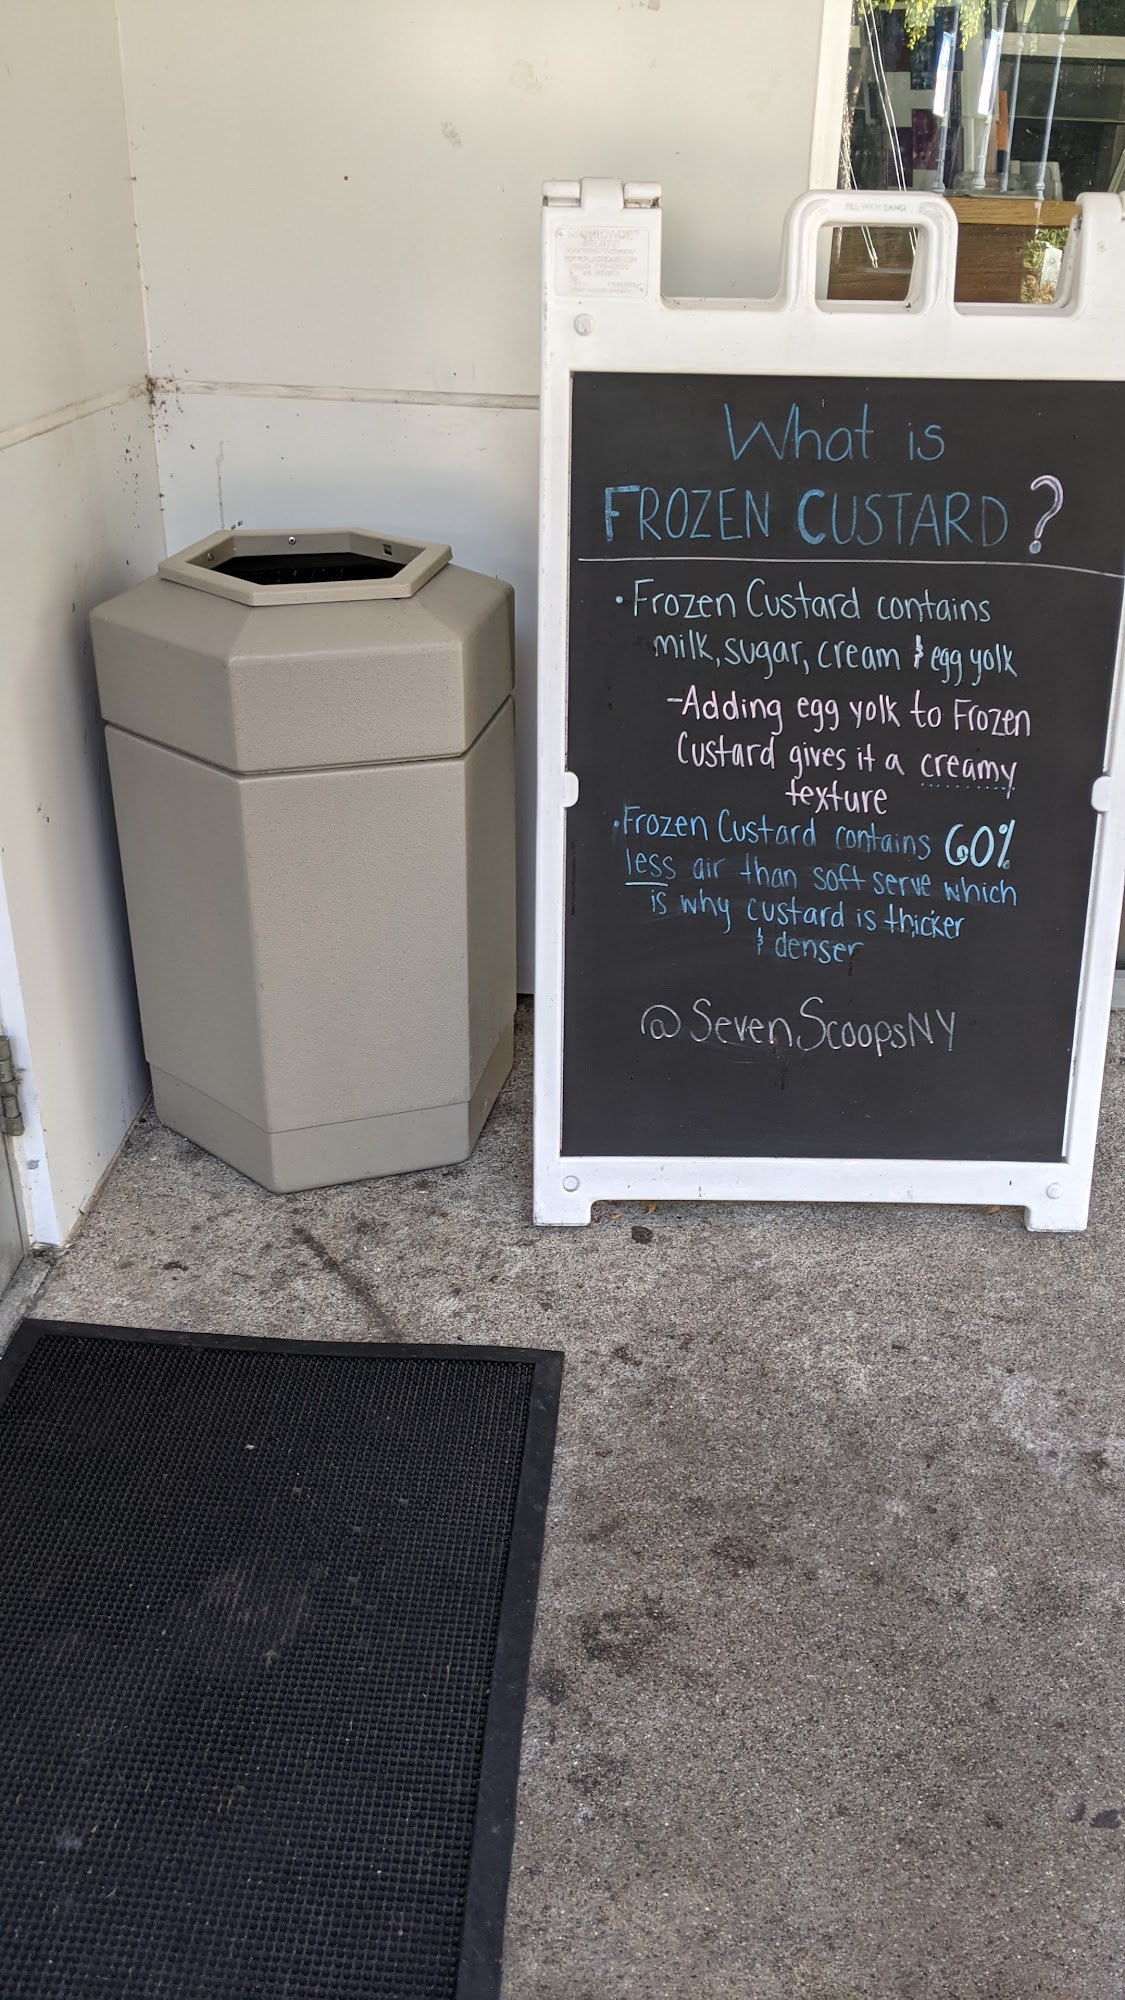 What is
FROZEN CUSTARD?
• Frozen Custard contains
milk, sugar, cream & egg yolk
-Adding egg yolk to Frozen
Custard gives it a creamy
texture
• Frozen Custard contains 60%
less air than soft serve which
is why custard is thicker
& denser
@SevenScoopsNY